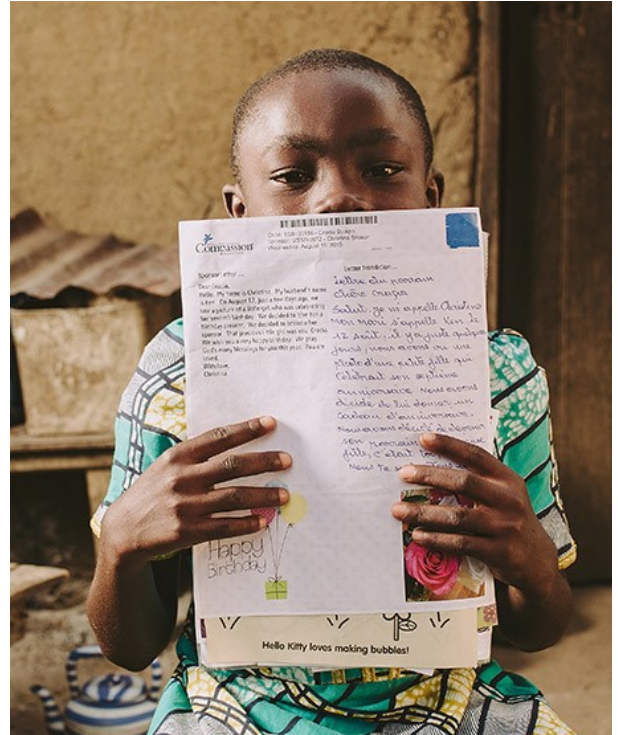 Compassion
Wednesday, August 19, 2015
Sponsor Letter ...
Dear Gracia,
Hello. My name is Christina. My husband's name
is Ken. On August 12, just a few days ago, we
saw a picture of a little girl who was celebrating
her seventh birthday. We decided to give her a
birthday present. We decided to become her
sponsor. That precious little girl was you, Gracia.
We wish you a very happy birthday. We pray
God's many blessings for you this year. You are
loved.
With love,
Christina
Letter Translation ...
Lettre du
chère Gracia
Salut, je m'appelle Christina
mon mari s'appelle Ken. Le
12 Août, il y a juste quelques
jours, nous avons vu une
photo d'une petite fille qui
célébrait son septième
anniversaire. Nous avons
décidé de lui donner un
cadeau d'anniversaire.
Nous avons décidé de devenir
son
fille, c'était
Nous te
Happy
Birthday
Hello Kitty loves making bubbles!